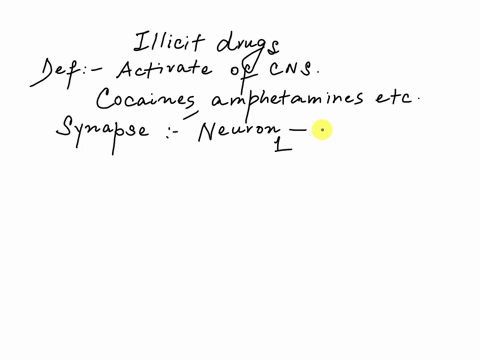 Illicit drugs
Def:- Activate of CNS.
Cocaines, amphetamines etc.
Synapse :- Neuron -
1